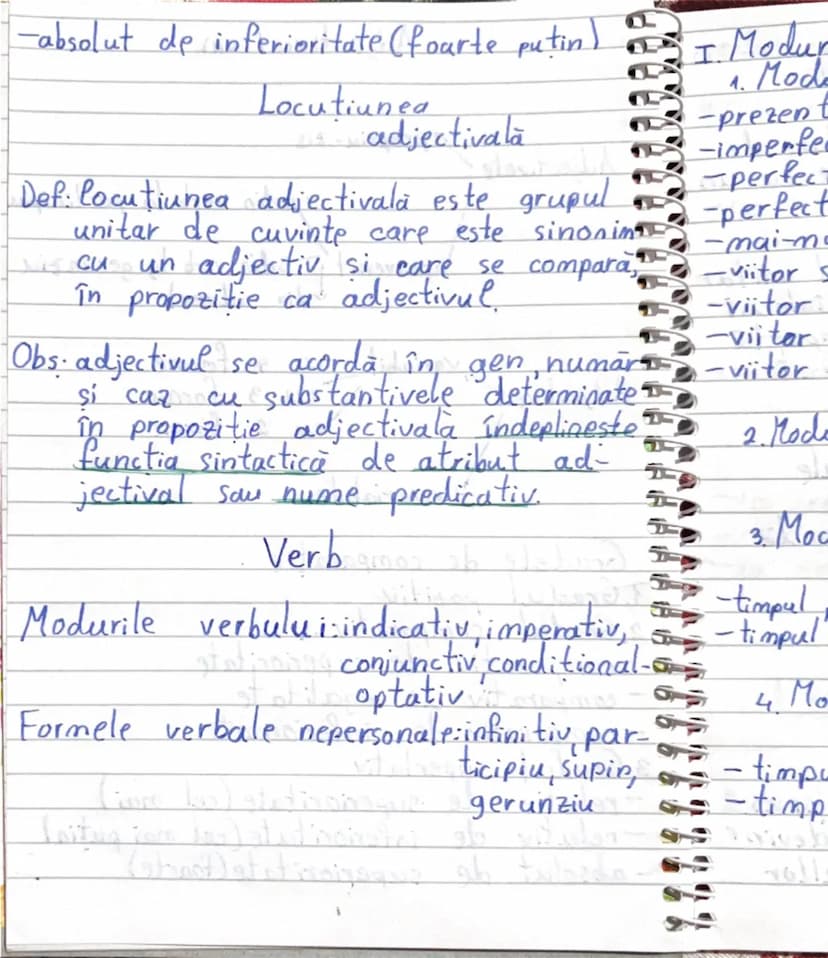 -absolut de inferioritate (foarte puțin)
Locuțiunea
adjectivală
Def: locuțiunea adjectivală este grupul
unitar de cuvinte care este sinonim
cu un adjectiv și care se compară,
în propoziție ca adjectivul.
Obs. adjectivul se acordă în gen, număr
și caz cu substantivele determinate
în propoziție adjectivală îndeplinește
funcția sintactică de atribut ad-
jectival sau nume predicativ.
Verb
Modurile verbului: indicativ, imperativ,
conjunctiv, condițional-
optativ
Formele verbale nepersonale: infinitiv, par-
ticipiu, supin,
gerunziu
I. Modur
1. Mod
-prezent
-imperfe
-perfec
-perfect
-mai-m
-viitor s
-viitor
-viitor
-viitor
2. Mod
3. Mod
-timpul
-timpul
4. Mo
-timpu
-timp